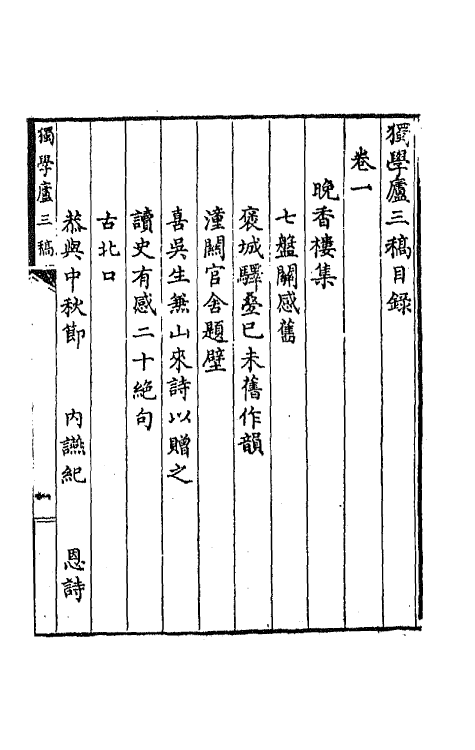 獨學廬三稿目錄
卷一
晚香樓集
七盤關感舊
褒城驛疊已未舊作韻
潼關官舍題壁
喜吳生兼山來詩以贈之
讀史有感二十絶句
古北口
恭與中秋節 內讌紀 恩詩
獨學廬三稿